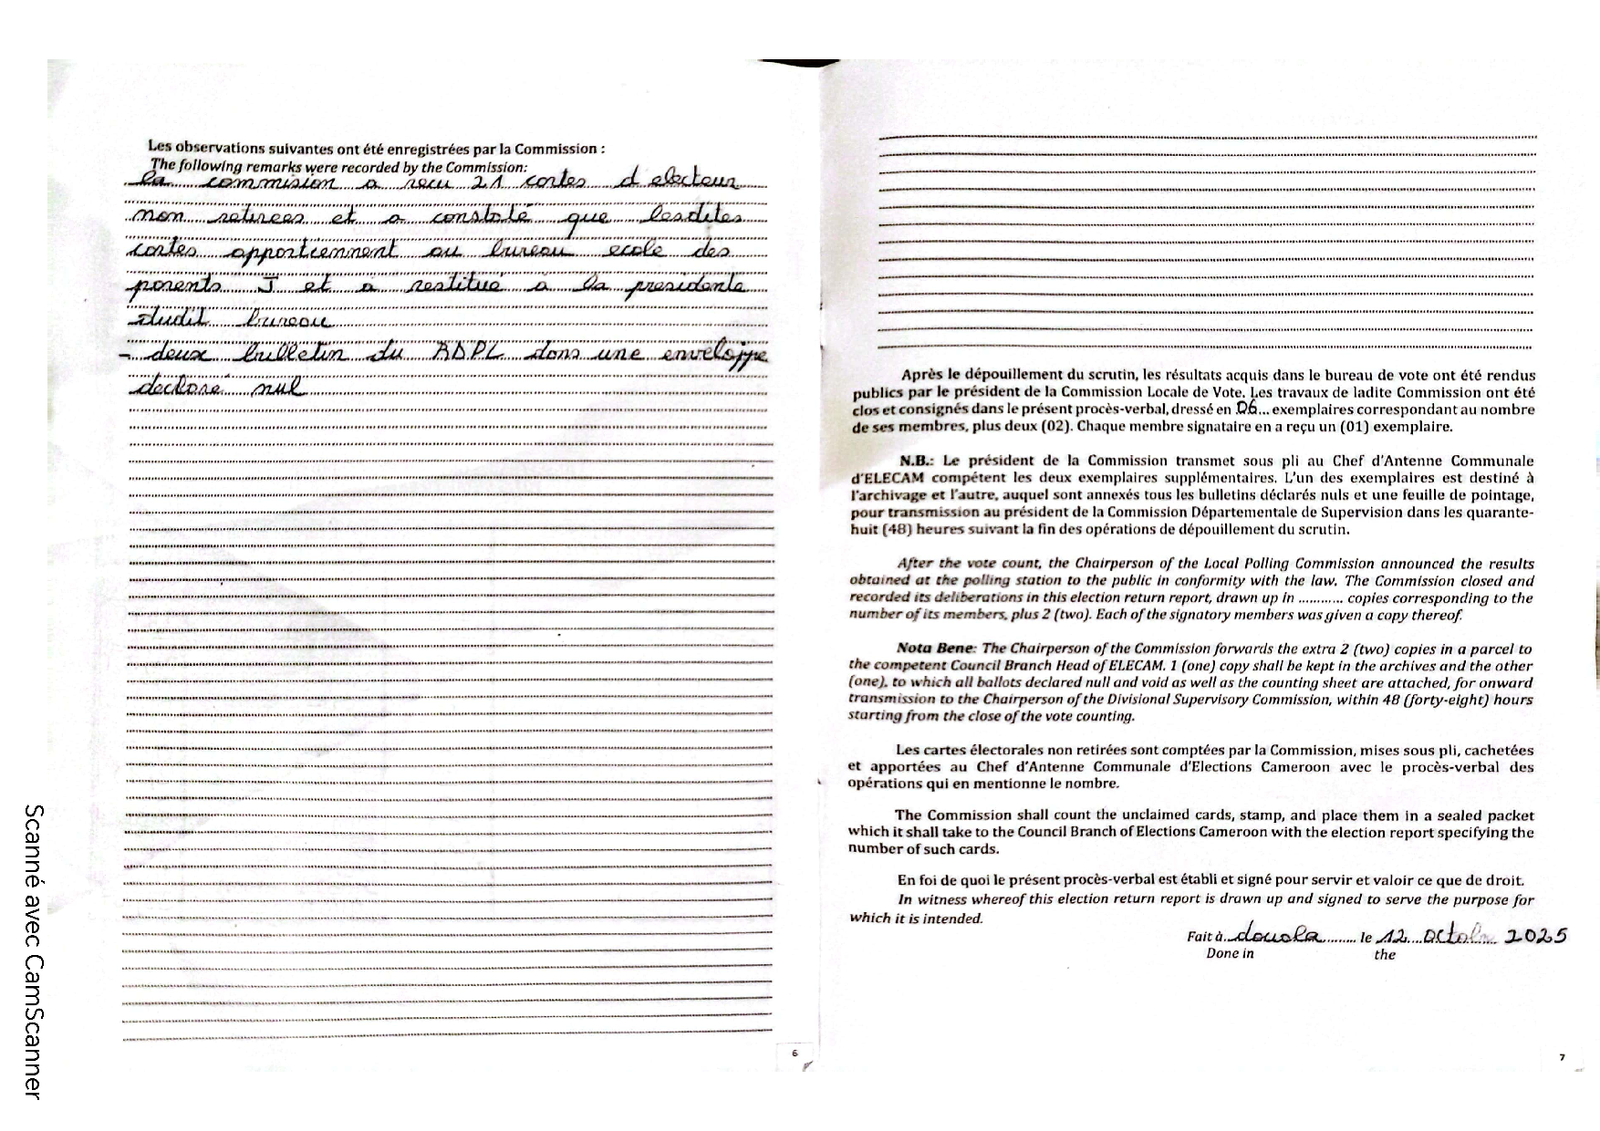 Les observations suivantes ont été enregistrées par la Commission :
The following remarks were recorded by the Commission:
la commision a recu 21 cartes d electeur
non retirees et a constaté que lesdites
cartes appartiennent au bureau ecole des
parents J et a restitué à la presidente
dudit bureau
- deux bulletin du RDPC dans une enveloppe
declaré nul
6
Après le dépouillement du scrutin, les résultats acquis dans le bureau de vote ont été rendus
publics par le président de la Commission Locale de Vote. Les travaux de ladite Commission ont été
clos et consignés dans le présent procès-verbal, dressé en 06... exemplaires correspondant au nombre
de ses membres, plus deux (02). Chaque membre signataire en a reçu un (01) exemplaire.
N.B.: Le président de la Commission transmet sous pli au Chef d'Antenne Communale
d'ELECAM compétent les deux exemplaires supplémentaires. L'un des exemplaires est destiné à
l'archivage et l'autre, auquel sont annexés tous les bulletins déclarés nuls et une feuille de pointage,
pour transmission au président de la Commission Départementale de Supervision dans les quarante-
huit (48) heures suivant la fin des opérations de dépouillement du scrutin.
After the vote count, the Chairperson of the Local Polling Commission announced the results
obtained at the polling station to the public in conformity with the law. The Commission closed and
recorded its deliberations in this election return report, drawn up in ............ copies corresponding to the
number of its members, plus 2 (two). Each of the signatory members was given a copy thereof.
Nota Bene: The Chairperson of the Commission forwards the extra 2 (two) copies in a parcel to
the competent Council Branch Head of ELECAM. 1 (one) copy shall be kept in the archives and the other
(one), to which all ballots declared null and void as well as the counting sheet are attached, for onward
transmission to the Chairperson of the Divisional Supervisory Commission, within 48 (forty-eight) hours
starting from the close of the vote counting.
Les cartes électorales non retirées sont comptées par la Commission, mises sous pli, cachetées
et apportées au Chef d'Antenne Communale d'Elections Cameroon avec le procès-verbal des
opérations qui en mentionne le nombre.
The Commission shall count the unclaimed cards, stamp, and place them in a sealed packet
which it shall take to the Council Branch of Elections Cameroon with the election report specifying the
number of such cards.
En foi de quoi le présent procès-verbal est établi et signé pour servir et valoir ce que de droit.
In witness whereof this election return report is drawn up and signed to serve the purpose for
which it is intended.
Fait à douala le 12 octobr 2025
Done in the
7
Scanné avec CamScanner